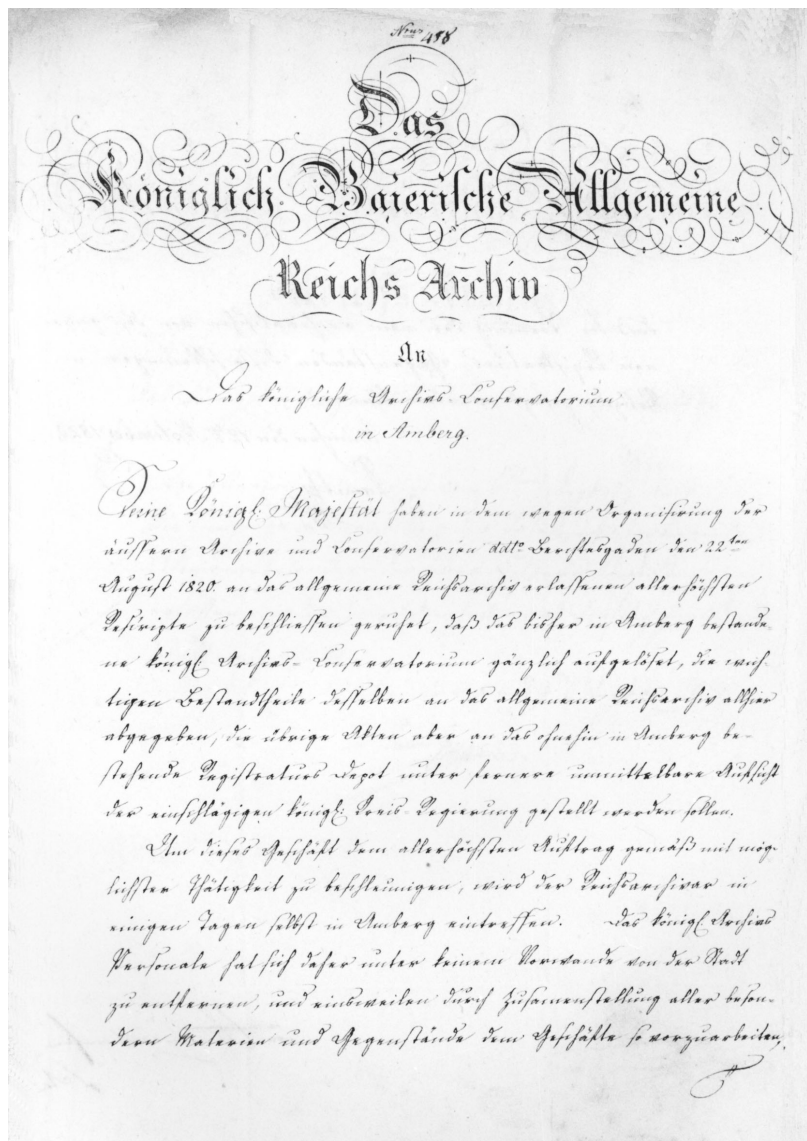 Num 488
Das
Königlich Baierische Allgemeine
Reichs Archiv
An
Das königliche Archivs-Conservatorium
in Amberg.
Seine Königl. Majestät haben in dem wegen Organisirung der
äussern Archive und Conservatorien ddto Berchtesgaden den 22ten
August 1820. an das allgemeine Reichsarchiv erlassenen allerhöchsten
Rescripte zu beschliessen geruhet, daß das bisher in Amberg bestande-
ne königl. Archivs-Conservatorium gänzlich aufgelöset, die wich-
tigen Bestandtheile desselben an das allgemeine Reichsarchiv allhier
abgegeben, die übrige Akten aber an das ohnehin in Amberg be-
stehende Registraturs Depot unter fernere unmittelbare Aufsicht
der einschlägigen königl. Kreis-Regierung gestellt werden sollen.
Um dieses Geschäft dem allerhöchsten Auftrag gemäß mit mög-
lichster Thätigkeit zu beschleunigen, wird der Reichsarchivar in
einigen Tagen selbst in Amberg eintreffen. Das königl. Archivs
Personale hat sich daher unter keinem Vorwande von der Stadt
zu entfernen, und einsweilen durch Zusamenstellung aller beson-
dern Materien und Gegenstände dem Geschäfte so vorzuarbeiten,